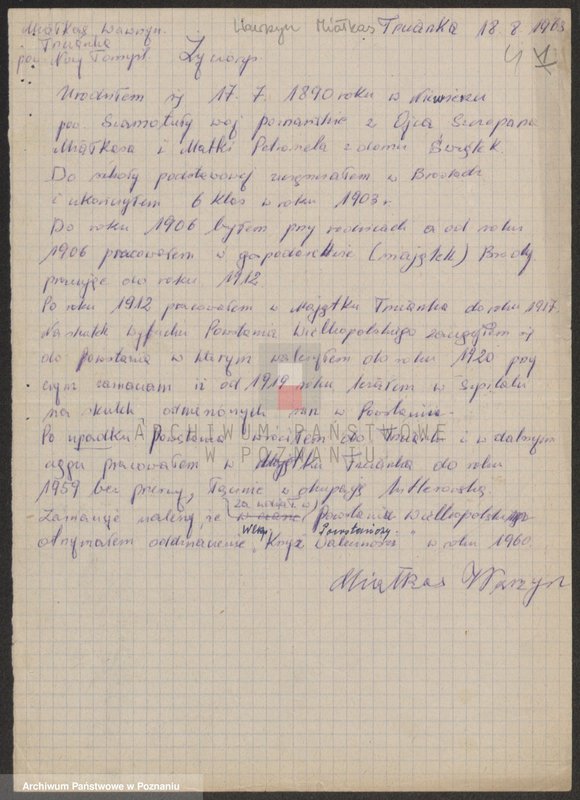 Miałkas Wawrzyn.
Wawrzyn Miałkas Trzcianka 18. 8. 1963
Trzcianka
pow. Nowy Tomyśl.
Życiorys
Urodziłem się 17. 7. 1890 roku w Niewierzu
pow. Szamotuły woj poznańskie z Ojca Szczepana
Miałkasa i Matki Petronela z domu
Do szkoły podstawowej uczęszczałem w Brodach
i ukończyłem 6 klas w roku 1903 r.
Do roku 1906 byłem przy rodzicach a od roku
1906 pracowałem w gospodarstwie (majątek) Brody
pracując do roku 1912
Po roku 1912 pracowałem w Majątku Trzcianka do roku 1917.
Na skutek wybuchu Powstania Wielkopolskiego zaciągłem się
do powstania w którym walczyłem do roku 1920 przy
czym zaznaczam iż od 1919 roku leżałem w Szpitalu
na skutek odniesionych ran w Powstaniu.
Po upadku powstania wróciłem do Trzcianki i w dalszym
ciągu pracowałem w Majątku Trzcianka do roku
1959 bez przerwy, łącznie w okupację hitlerowską.
(za udział w)
Zaznaczyć należy że Powstaniu Wielkopolskim
Wlkp. Powstańczy
otrzymałem odznaczenie "Krzyż Waleczności" w roku 1960.
Miałkas Wawrzyn
ARCHIWUM PAŃSTWOWE
W POZNANIU
Archiwum Państwowe w Poznaniu